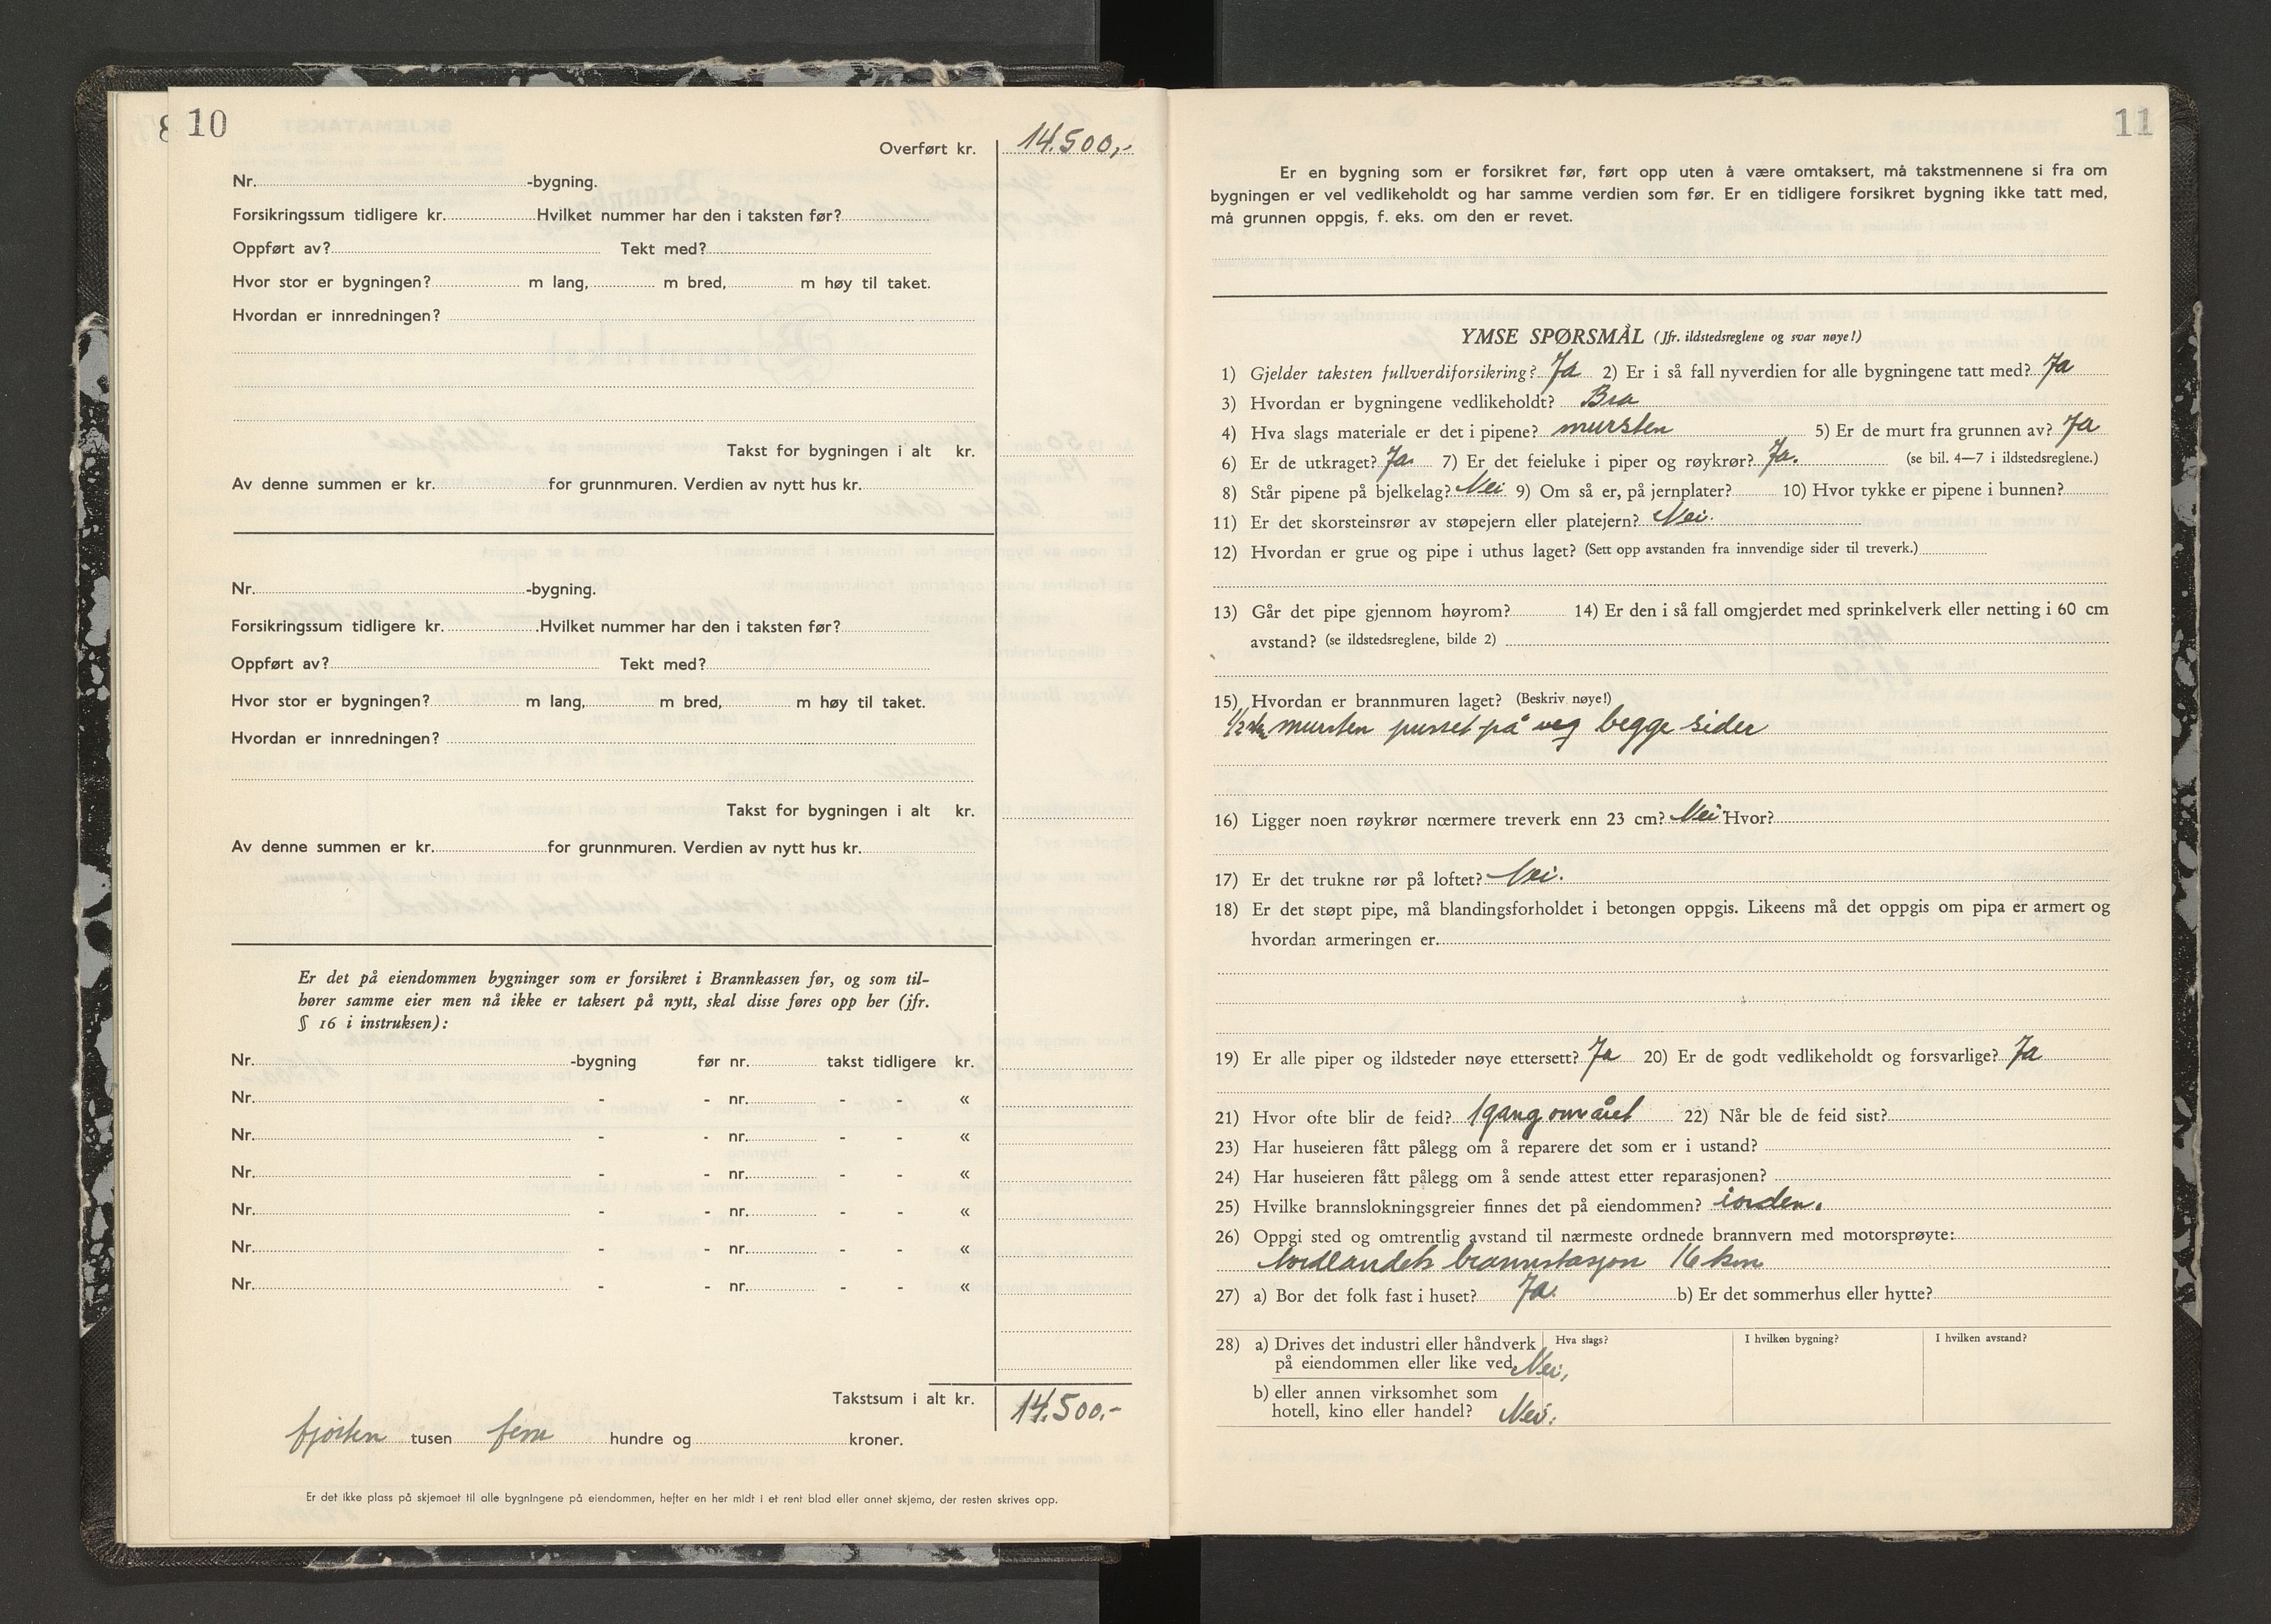 10
Overført kr. 14.500,-
Nr. -bygning.
Forsikringssum tidligere kr. Hvilket nummer har den i taksten før?
Oppført av? Tekt med?
Hvor stor er bygningen? m lang, m bred, m høy til taket.
Hvordan er innredningen?
Takst for bygningen i alt kr.
Av denne summen er kr. for grunnmuren. Verdien av nytt hus kr.
Nr. -bygning.
Forsikringssum tidligere kr. Hvilket nummer har den i taksten før?
Oppført av? Tekt med?
Hvor stor er bygningen? m lang, m bred, m høy til taket.
Hvordan er innredningen?
Takst for bygningen i alt kr.
Av denne summen er kr. for grunnmuren. Verdien av nytt hus kr.
Er det på eiendommen bygninger som er forsikret i Brannkassen før, og som til-
hører samme eier men nå ikke er taksert på nytt, skal disse føres opp her (jfr.
§ 16 i instruksen):
Nr. -bygning før nr. takst tidligere kr.
Nr. - - nr. - - «
Nr. - - nr. - - «
Nr. - - nr. - - «
Nr. - - nr. - - «
Nr. - - nr. - - «
Nr. - - nr. - - «
Takstsum i alt kr. 14.500.-
fjorten tusen fem hundre og kroner.
Er det ikke plass på skjemaet til alle bygningene på eiendommen, hefter en her midt i et rent blad eller annet skjema, der resten skrives opp.
11
Er en bygning som er forsikret før, ført opp uten å være omtaksert, må takstmennene si fra om
bygningen er vel vedlikeholdt og har samme verdien som før. Er en tidligere forsikret bygning ikke tatt med,
må grunnen oppgis, f. eks. om den er revet.
YMSE SPØRSMÅL (Jfr. ildstedsreglene og svar nøye!)
1) Gjelder taksten fullverdiforsikring? Ja 2) Er i så fall nyverdien for alle bygningene tatt med? Ja
3) Hvordan er bygningene vedlikeholdt? Bra
4) Hva slags materiale er det i pipene? mursten 5) Er de murt fra grunnen av? Ja
6) Er de utkraget? Ja. 7) Er det feieluke i piper og røykrør? Ja. (se bil. 4—7 i ildstedsreglene.)
8) Står pipene på bjelkelag? Nei 9) Om så er, på jernplater? 10) Hvor tykke er pipene i bunnen?
11) Er det skorsteinsrør av støpejern eller platejern? Nei.
12) Hvordan er grue og pipe i uthus laget? (Sett opp avstanden fra innvendige sider til treverk.)
13) Går det pipe gjennom høyrom? 14) Er den i så fall omgjerdet med sprinkelverk eller netting i 60 cm
avstand? (se ildstedsreglene, bilde 2)
15) Hvordan er brannmuren laget? (Beskriv nøye!)
1/2 mursten pusset på begge sider
16) Ligger noen røykrør nærmere treverk enn 23 cm? Nei Hvor?
17) Er det trukne rør på loftet? Nei.
18) Er det støpt pipe, må blandingsforholdet i betongen oppgis. Likeens må det oppgis om pipa er armert og
hvordan armeringen er.
19) Er alle piper og ildsteder nøye ettersett? Ja 20) Er de godt vedlikeholdt og forsvarlige? Ja
21) Hvor ofte blir de feid? 1 gang om året 22) Når ble de feid sist?
23) Har huseieren fått pålegg om å reparere det som er i ustand?
24) Har huseieren fått pålegg om å sende attest etter reparasjonen?
25) Hvilke brannslokningsgreier finnes det på eiendommen? i orden.
26) Oppgi sted og omtrentlig avstand til nærmeste ordnede brannvern med motorsprøyte:
Nordlandets brannstasjon 16 km
27) a) Bor det folk fast i huset? Ja. b) Er det sommerhus eller hytte?
28) a) Drives det industri eller håndverk Hva slags? I hvilken bygning? I hvilken avstand?
på eiendommen eller like ved Nei,
b) eller annen virksomhet som
hotell, kino eller handel? Nei.